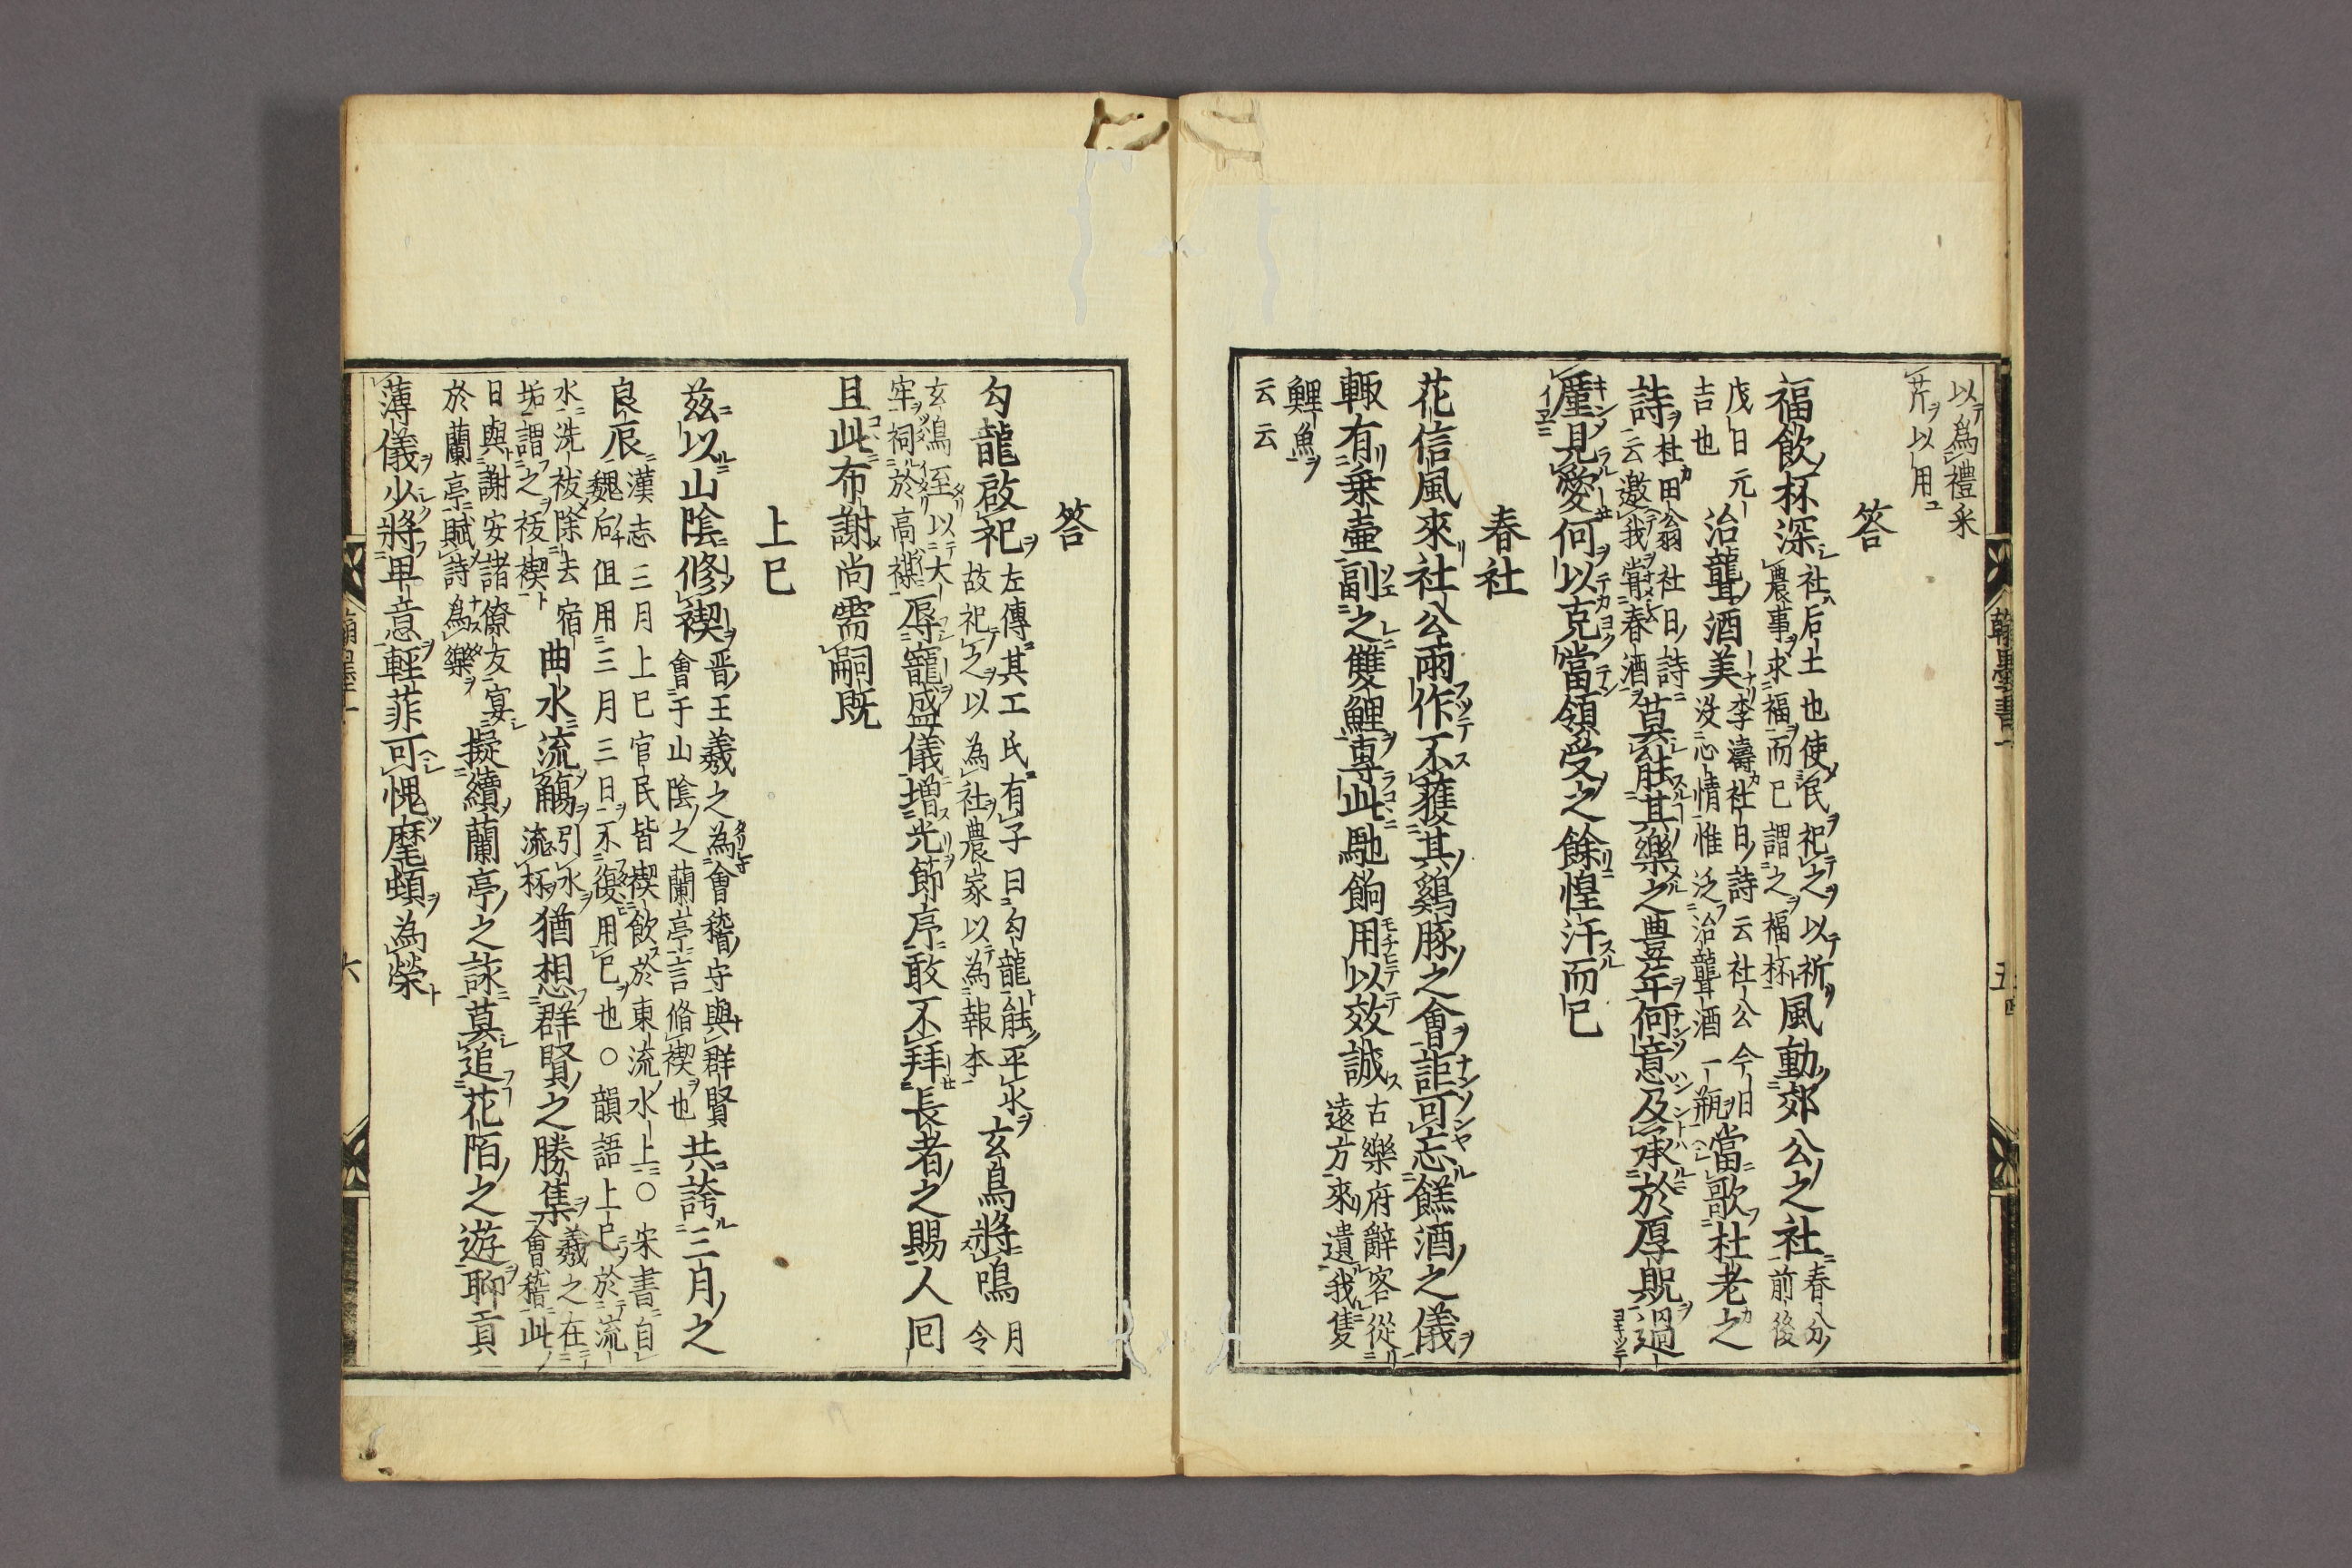 以爲禮采
芹以用
答
福飲杯深
社后土也使民祀之以祈
農事求福而已謂之福杯
風動郊公之社
春分前後
戊日元吉也
治聾酒美
李濤社日詩云社公今日
没心情惟泛治聾酒一瓶
當歌杜老之
詩
杜田翁社日詩
云邀我嘗春酒
莫能其樂之豊年何意及承於厚貺過
廑見愛何以克當領受之餘惶汗而已
春社
花信風來社公雨作不獲其鷄豚之會詎可忘餻酒之儀
輙有乗壷副之雙鯉專此馳餉用以效誠
古樂府辭客從
遠方來遺我隻
鯉魚
云云
翰墨書一
答
勾龍啟祀
左傳其工氏有子曰勾龍能平水
故祀之以為社農家以為報本
玄鳥將鳴
月
令
玄鳥至以大
牢祠於高禖
辱寵盛儀増光節序敢不拜長者之賜人囘
且此布謝尚需嗣既
上巳
茲以山陰修禊
晋王羲之為會稽守與群賢
會于山陰之蘭亭言脩禊也
共誇三月之
良辰
漢志三月上巳官民皆禊飲於東流水上○宋書自
魏后但用三月三日不復用巳也○韻語上巳於流
水洗祓除去宿
垢謂之祓禊
曲水流觴
引水
流杯
猶想群賢之勝集
羲之在
會稽此
日與謝安諸僚友宴
於蘭亭賦詩為樂
擬續蘭亭之詠莫追花陌之遊聊貢
薄儀少將卑意輕菲可愧麾頓為榮
六